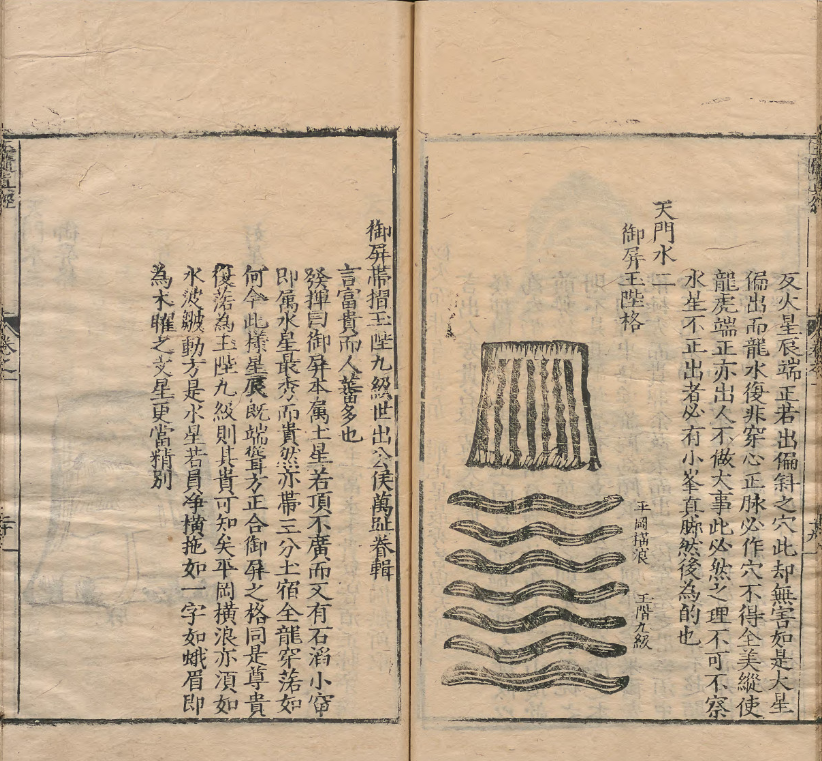 亥火星辰端正若出偏斜之穴此却無害如是大星
偏出而龍水復非穿心正脉必作穴不得全美縱使
龍虎端正亦出人不做大事此必然之理不可不察
水星不正出者必有小峯真脉然後為的也
天門水二
御屏玉陛格
平岡搨浪
玉階九級
御屏帶摺玉陛九級世出公侯萬趾眷輯
言富貴而人蕃多也
發揮曰御屏本属土星若頂不廣而又有石滔小窜
即属水星最秀而貴然亦帶三分土宿全龍穿落如
何今此樣星辰既端聳方正合御屏之格同是尊貴
復落為玉陛九級則其貴可知矣平岡橫浪亦須如
水波皺動方是水星若員净橫拖如一字如蛾眉即
為木曜之文星更當精别
卷之一